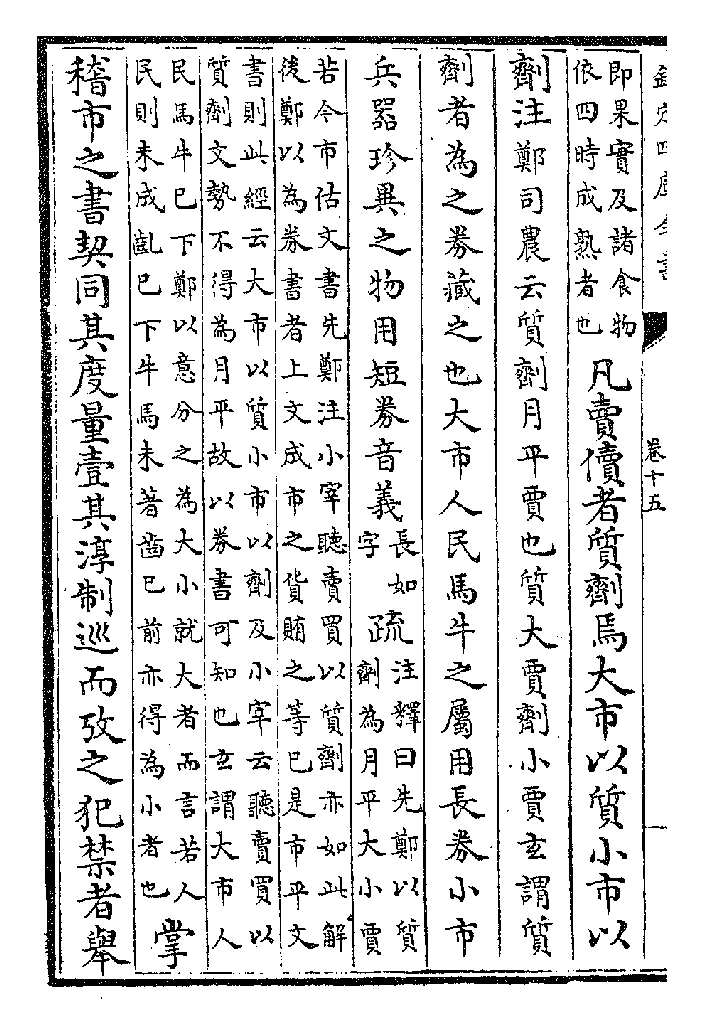 欽定四庫全書
卷十五
即果實及諸食物
依四時成熟者也
凡賣儥者質劑焉大市以質小市以
劑注鄭司農云質劑月平賈也質大賈劑小賈玄謂質
劑者為之券藏之也大市人民馬牛之屬用長券小市
兵器珍異之物用短券音義
長如
字
疏
注釋曰先鄭以質
劑為月平大小賈
若今市估文書先鄭注小宰聽賣買以質劑亦如此解
後鄭以為券書者上文成市之貨賄之等已是市平文
書則此經云大市以質小市以劑及小宰云聽賣買以
質劑文勢不得為月平故以券書可知也玄謂大市人
民馬牛已下鄭以意分之為大小就大者而言若人
民則未成齓已下牛馬未著齒已前亦得為小者也
掌
稽市之書契同其度量壹其淳制巡而攷之犯禁者舉